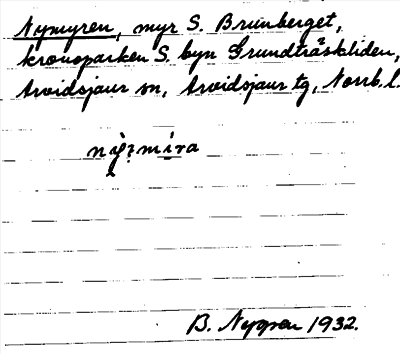 Nymyren, myr S. Brunberget,
kronoparken S. byn Grundträskliden,
Arvidsjaur sn, Arvidsjaur tg, Norrb. l.
B. Nygren 1932.